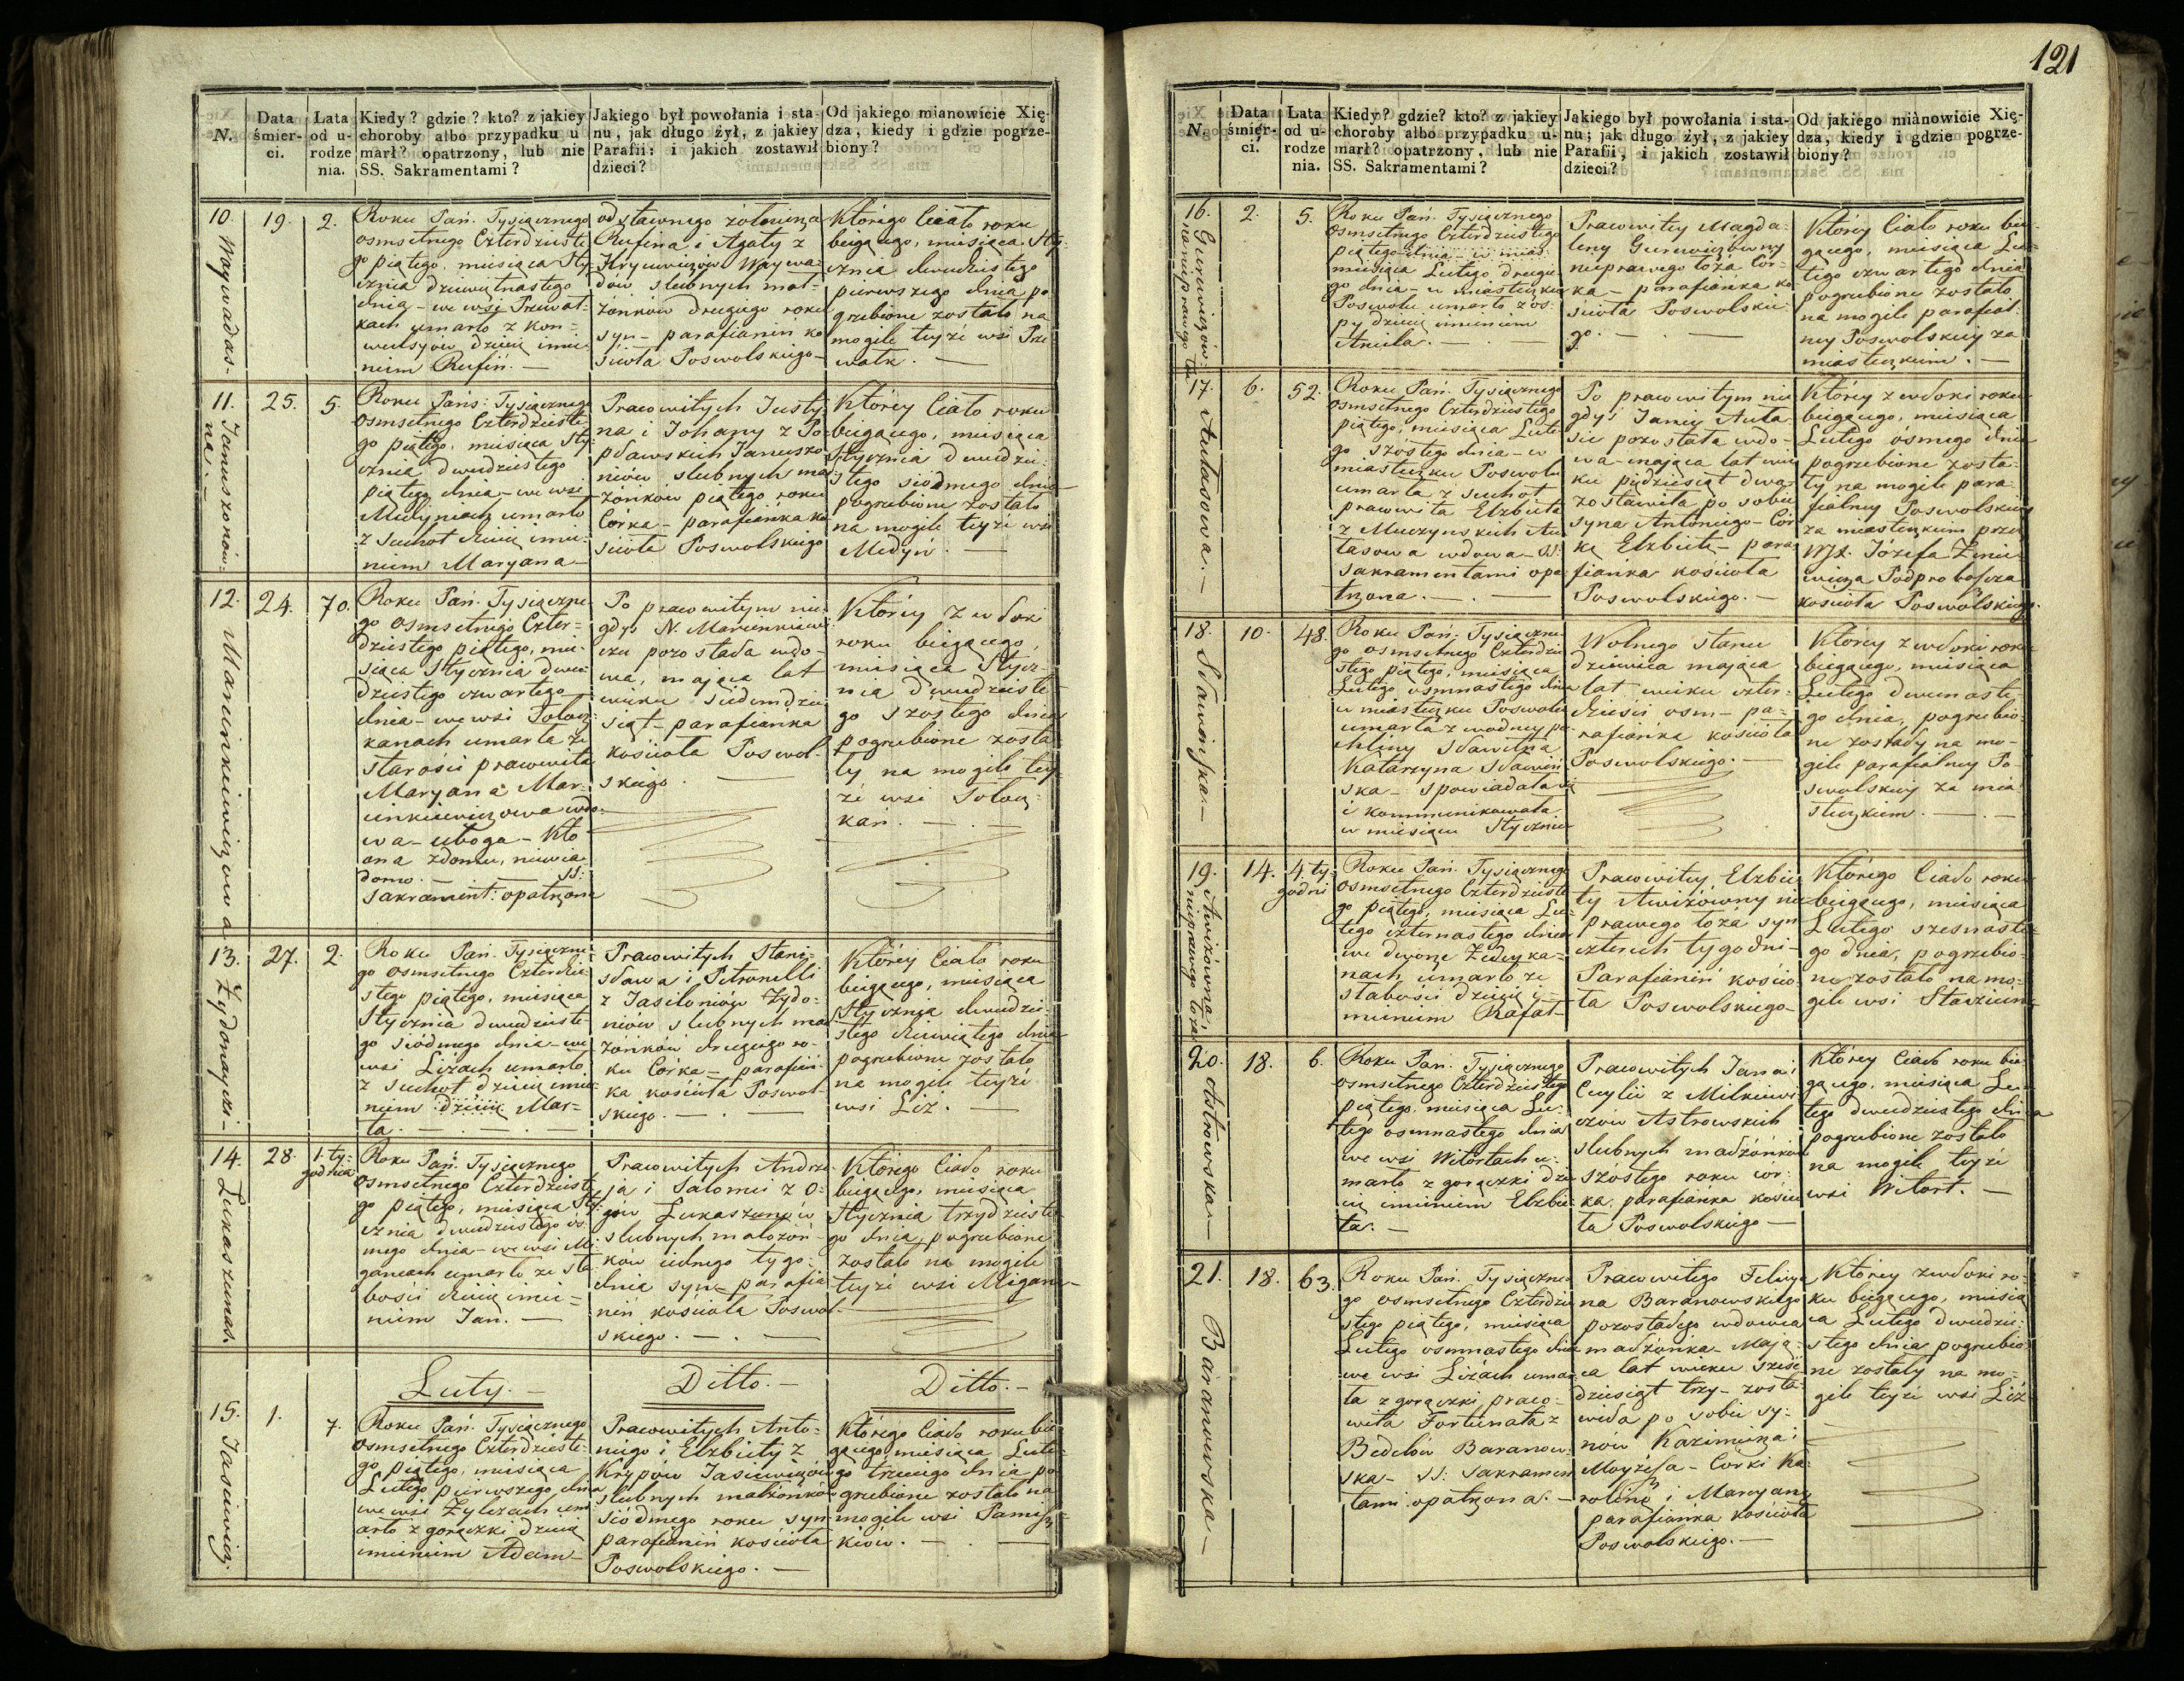 121
N.
Data śmierci.
Lata od urodzenia.
Kiedy? gdzie? kto? z jakiey
choroby albo przypadku u
marł? opatrzony, lub nie
SS. Sakramentami?
Jakiego był powołania i sta-
nu, jak długo żył, z jakiey
Parafii: i jakich zostawił
dzieci?
Od jakiego mianowicie Xię-
dza, kiedy i gdzie pogrze-
biony?
10.
Waywadas.
19.
2.
Roku Pań. Tysiącznego
osmsetnego Czterdzieste
go piątego, miesiąca Sty
cznia dziewiętnastego
dnia - we wsi Przewał-
kach umarło z kon=
wulsyów dziecię imie
niem Rufin. —
odstawnego żołnierza
Rufina i Agaty z
Krycewiczów Waywa=
dów slubnych mał-
żonków drugiego roku
syn - parafianin ko
ścioła Poswolskiego -
Którego Ciało roku
bieżącego, miesiąca Sty
cznia dwudziestego
pierwszego dnia po
grzebione zostało na
mogile teyże wsi Prze
wałk. —
11.
Januszonów-
na. —
25.
5.
Roku Pańs. Tysiącznego
osmsetnego Czterdzieste
go piątego, miesiąca Sty-
cznia dwudziestego
piątego dnia - we wsi
Medyniach umarło
z suchot dziecię imie-
niem Maryana -
Pracowitych Justy
na i Johany z Po-
pławskich Januszo
niów slubnych mał
żonków piątego roku
Córka - parafianka ko
ścioła Poswolskiego
Którey Ciało roku
bieżącego, miesiąca
Stycznia dwudzie-
stego siódmego dnia
pogrzebione zostało
na mogile teyże wsi
Medyń. —
12.
Marcinkiewiczowa
24.
70.
Roku Pań. Tysiączne
go osmsetnego Czter=
dziestego piątego, mie-
siąca Stycznia dwu-
dziestego czwartego
dnia - we wsi Tołoc=
kanach umarła ze
starości pracowita
Maryana Mar-
cinkiewiczowa wdo-
wa - uboga - Kto
ona z domu, niewia
domo. — — SS:
Sakrament: opatrzona
Po pracowitym nie
gdyś N. Marcinkiewi
czu pozostała wdo-
wa, mająca lat
wieku siedmdzie
siąt - parafianka
kościoła Poswol-
skiego. —
Którey zwłoki
roku bieżącego,
miesiąca Stycz-
nia dwudzieste
go szóstego dnia
pogrzebione zosta
ły na mogile tey-
że wsi Tołoc=
kań. —
13.
Żydonayci -
27.
2.
Roku Pań. Tysiączne
go osmsetnego Czterdzie
stego piątego, miesiąca
Stycznia dwudzieste
go siódmego dnia - we
wsi Liżach umarło
z suchot dziecię imie
niem dziecię Mar=
ta. — . —
Pracowitych Stani-
sława i Petronelli
z Jasiloniów Żydo=
niów slubnych mał
żonków drugiego ro-
ku Córka - parafian-
ka kościoła Poswol-
skiego. — . —
Którey Ciało roku
bieżącego, miesiąca
Stycznia dwudzie-
stego dziewiątego dnia
pogrzebione zostało
na mogile teyże
wsi Liż. —
14.
Łukaszunas.
28.
1. ty-
godnia
Roku Pań. Tysiącznego
osmsetnego Czterdzieste
go piątego, miesiąca Sty
cznia dwudziestego ós-
mego dnia - we wsi Mi
gańcach umarło ze sła
bości dziecię imie=
niem Jan. —
Pracowitych Andrze-
ja i Salomei z O-
gów Łukaszunów
slubnych małżon-
ków iednego tygo-
dnia syn - parafia
nin kościoła Poswol-
skiego. — . —
Którego Ciało roku
bieżącego, miesiąca
Stycznia trzydzieste
go dnia, pogrzebione
zostało na mogile
teyże wsi Migań -
Luty. —
Ditto. —
Ditto. —
15.
Jasiewicz.
1.
7.
Roku Pań. Tysiącznego
osmsetnego Czterdzieste-
go piątego, miesiąca
Lutego pierwszego dnia
we wsi Żylczach um
arło z gorączki dziecię
imieniem Adam -
Pracowitych Anto-
niego i Elżbiety z
Krypów Jasiewiczów
slubnych małżonków
siódmego roku syn
parafianin kościoła
Poswolskiego. —
Którego Ciało roku bie
żącego, miesiąca Lute-
go trzeciego dnia po
grzebione zostało na
mogile wsi Pamiż-
kiów. — . —
N.
Data śmierci.
Lata od urodzenia.
Kiedy? gdzie? kto? z jakiey
choroby albo przypadku u-
marł? opatrzony, lub nie
SS. Sakramentami?
Jakiego był powołania i sta-
nu; jak długo żył, z jakiey
Parafii, i jakich zostawił
dzieci?
Od jakiego mianowicie Xię-
dza, kiedy i gdzie pogrze-
biony?
16.
Gurewiczów=
na nieprawego łoża
2.
5.
Roku Pań. Tysiącznego
osmsetnego Czterdziestego
piątego dnia - w mias.
miesiąca Lutego drugie
go dnia - w miasteczku
Poswolu umarło z os-
py dziecię imieniem
Aniela. — . —
Pracowitey Magda-
leny Gurewiczówny
nieprawego łoża Cór-
ka - parafianka ko
ścioła Poswolskie-
go. — . —
Którey Ciało roku bie-
żącego, miesiąca Lu-
tego czwartego dnia
pogrzebione zostało
na mogile parafial-
ney Poswolskiey za
miasteczkiem. —
17.
Autasowa. —
6.
52.
Roku Pań. Tysiącznego
osmsetnego Czterdziestego
piątego, miesiąca Lute
go szóstego dnia - w
miasteczku Poswolu
umarła z suchot
pracowita Elżbieta
z Muczynskich Au
tasowa wdowa - SS.
Sakramentami opa
trzona. — . —
Po pracowitym nie
gdyś Janie Auta
sie pozostała wdo-
wa - mająca lat wie
ku pięćdziesiąt dwa
zostawiła po sobie
syna Antoniego - Cór
kę Elżbietę - para
fianka kościoła
Poswolskiego. —
Którey zwłoki roku
bieżącego, miesiąca
Lutego ósmego dnia
pogrzebione zosta-
ły na mogile para-
fialney Poswolskiey
za miasteczkiem przez
WJX. Józefa Żmie-
wicza Podproboszcza
kościoła Poswolskiego.
18.
Sławińska. —
10.
48.
Roku Pań. Tysiączne
go osmsetnego Czterdzie
stego piątego, miesiąca
Lutego osmnastego dnia
w miasteczku Poswolu
umarła z wodney pu-
chliny Sławetna
Katarzyna Sławiń
ska - spowiadała się
i kommunikowała
w miesiącu Styczniu
Wolnego stanu
dziewica mająca
lat wieku czter-
dzieści osm - pa-
rafianka kościoła
Poswolskiego. —
Którey zwłoki roku
bieżącego, miesiąca
Lutego dwunaste-
go dnia, pogrzebio
ne zostały na mo-
gile parafialney Po-
swolskiey za mia-
steczkiem. — . —
19.
Awiżówna,
nieprawego łoża
14.
4. ty-
godni
Roku Pań. Tysiącznego
osmsetnego Czterdzieste
go piątego, miesiąca Lu-
tego czternastego dnia
we dworze Żedeyka-
niach umarło ze
słabości dziecię i-
mieniem Rafał -
Pracowitey Elżbie
ty Awiżówny nie
prawego łoża syn
czterech tygodni -
Parafianin kościo
ła Poswolskiego -
Którego Ciało roku
bieżącego, miesiąca
Lutego szesnaste-
go dnia, pogrzebio-
ne zostało na mo-
gile wsi Stacziun.
20.
Ostrowska —
18.
6.
Roku Pań. Tysiącznego
osmsetnego Czterdziestego
piątego, miesiąca Lu-
tego osmnastego dnia
we wsi Witortach u-
marło z gorączki dzie
cię imieniem Elżbie-
ta. —
Pracowitych Jana i
Cecylii z Milkiewi
czów Astrowskich
slubnych małżonków
szóstego roku cór-
ka, parafianka kościo
ła Poswolskiego —
Którey Ciało roku bie
żącego, miesiąca Lu-
tego dwudziestego dnia
pogrzebione zostało
na mogile teyże
wsi Witort. —
21.
Baranowska —
18.
63.
Roku Pań. Tysiączne
go osmsetnego Czterdzie
stego piątego, miesiąca
Lutego osmnastego dnia
we wsi Liżach umar
ła z gorączki praco-
wita Fortunata z
Bedelów Baranow-
ska - SS: Sakramen
tami opatrzona. —
Pracowitego Felicya
na Baranowskiego
pozostałego wdowca
małżonka - Mają-
ca lat wieku sześć
dziesiąt trzy - zosta-
wiła po sobie sy-
nów Kazimierza i
Moyżesza - Córki Ka-
rolinę i Maryanę
parafianka kościoła
Poswolskiego. —
Którey zwłoki ro-
ku bieżącego, miesią
ca Lutego dwudzie-
stego dnia pogrzebio
ne zostały na mo-
gile teyże wsi Liż -